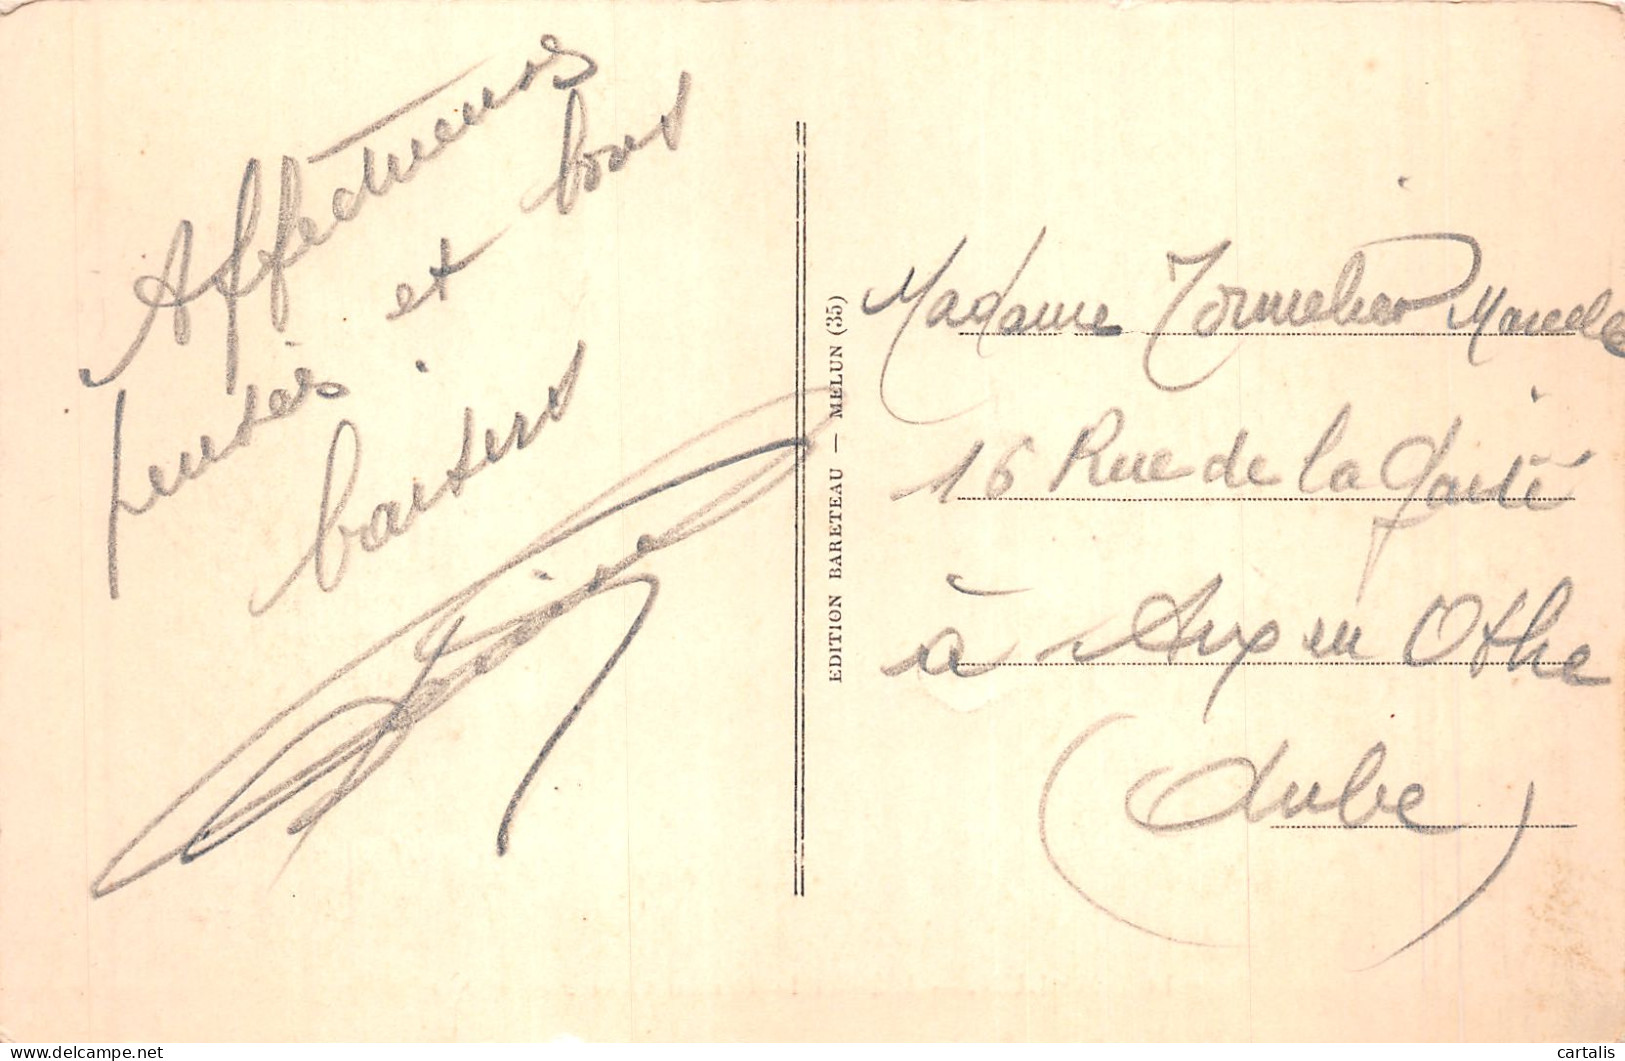 Affectueuses
pensées et bons
baisers
EDITION BARETEAU — MELUN (35)
Madame Marcelle
16 Rue de la Gaité
à Aix en Othe
(Aube)
delcampe.net
cartalis